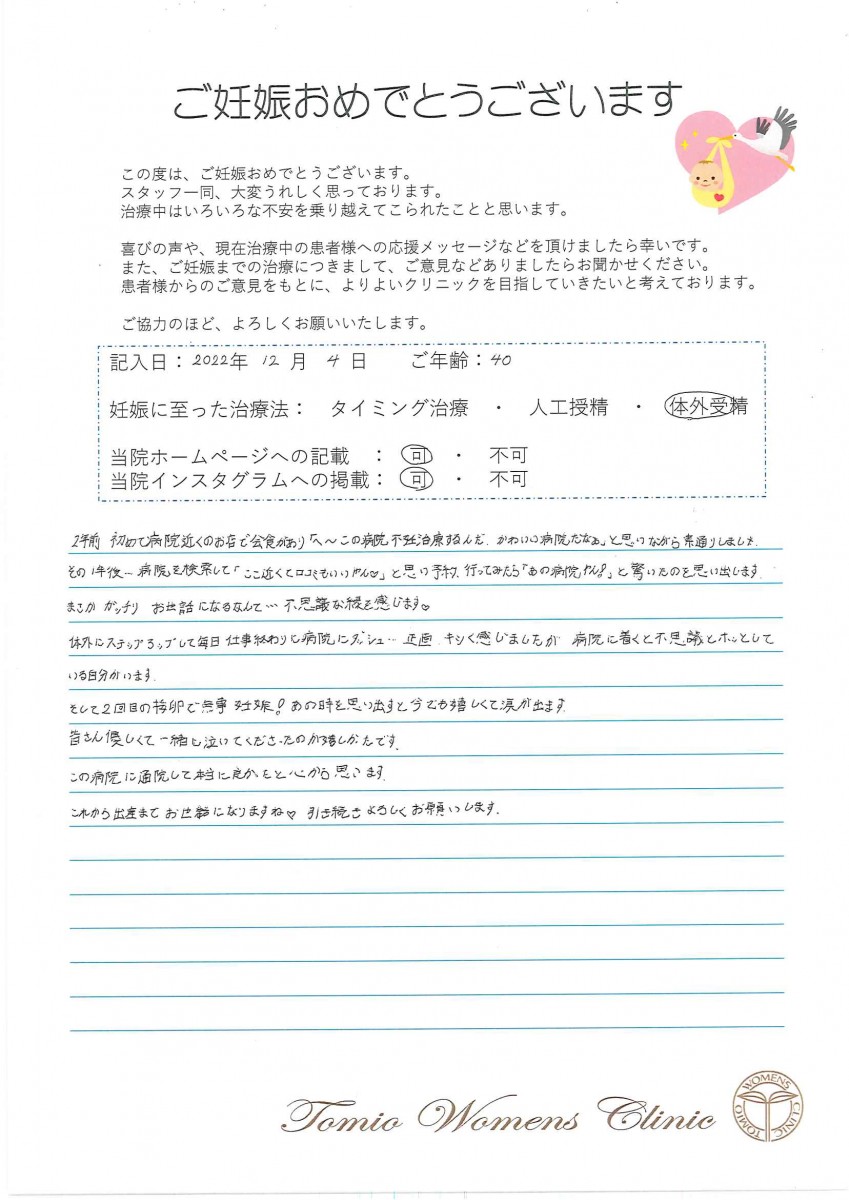 ご妊娠おめでとうございます
この度は、ご妊娠おめでとうございます。
スタッフ一同、大変うれしく思っております。
治療中はいろいろな不安を乗り越えてこられたことと思います。
喜びの声や、現在治療中の患者様への応援メッセージなどを頂けましたら幸いです。
また、ご妊娠までの治療につきまして、ご意見などありましたらお聞かせください。
患者様からのご意見をもとに、よりよいクリニックを目指していきたいと考えております。
ご協力のほど、よろしくお願いいたします。
記入日：2022年 12月 4日 ご年齢：40
妊娠に至った治療法： タイミング治療 ・ 人工授精 ・ 体外受精
当院ホームページへの記載 ： 可 ・ 不可
当院インスタグラムへの掲載： 可 ・ 不可
2年前 初めて病院近くのお店で会食があり「へ～この病院不妊治療するんだ.かわいい病院だなぁ」と思いながら素通りしました.
その1年後… 病院を検索して「ここ近くて口コミもいいやん♡」と思い予約.行ってみたら「あの病院やん!」と驚いたのを思い出します.
まさか ガッチリ お世話になるなんて… 不思議な縁を感じます♡
体外にステップアップして毎日 仕事終わりに病院にダッシュ… 正直 キツく感じましたが 病院に着くと不思議とホッとして
いる自分がいます.
そして2回目の移卵で無事 妊娠! あの時を思い出すと今でも嬉しくて涙が出ます.
皆さん優しくて一緒に泣いてくださったのが嬉しかたです.
この病院に通院して本当に良かったと心から思います.
これから出産まで お世話になりますね♡ 引き続きよろしくお願いします.
Tomio Womens Clinic
TOMIO WOMENS CLINIC